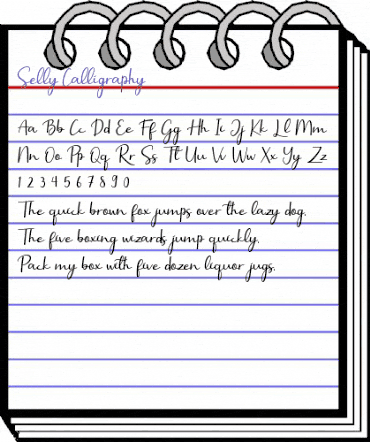 Selly Calligraphy
Aa Bb Cc Dd Ee Ff Gg Hh Ii Jj Kk Ll Mm
Nn Oo Pp Qq Rr Ss Tt Uu Vv Ww Xx Yy Zz
1 2 3 4 5 6 7 8 9 0
The quick brown fox jumps over the lazy dog.
The five boxing wizards jump quickly.
Pack my box with five dozen liquor jugs.